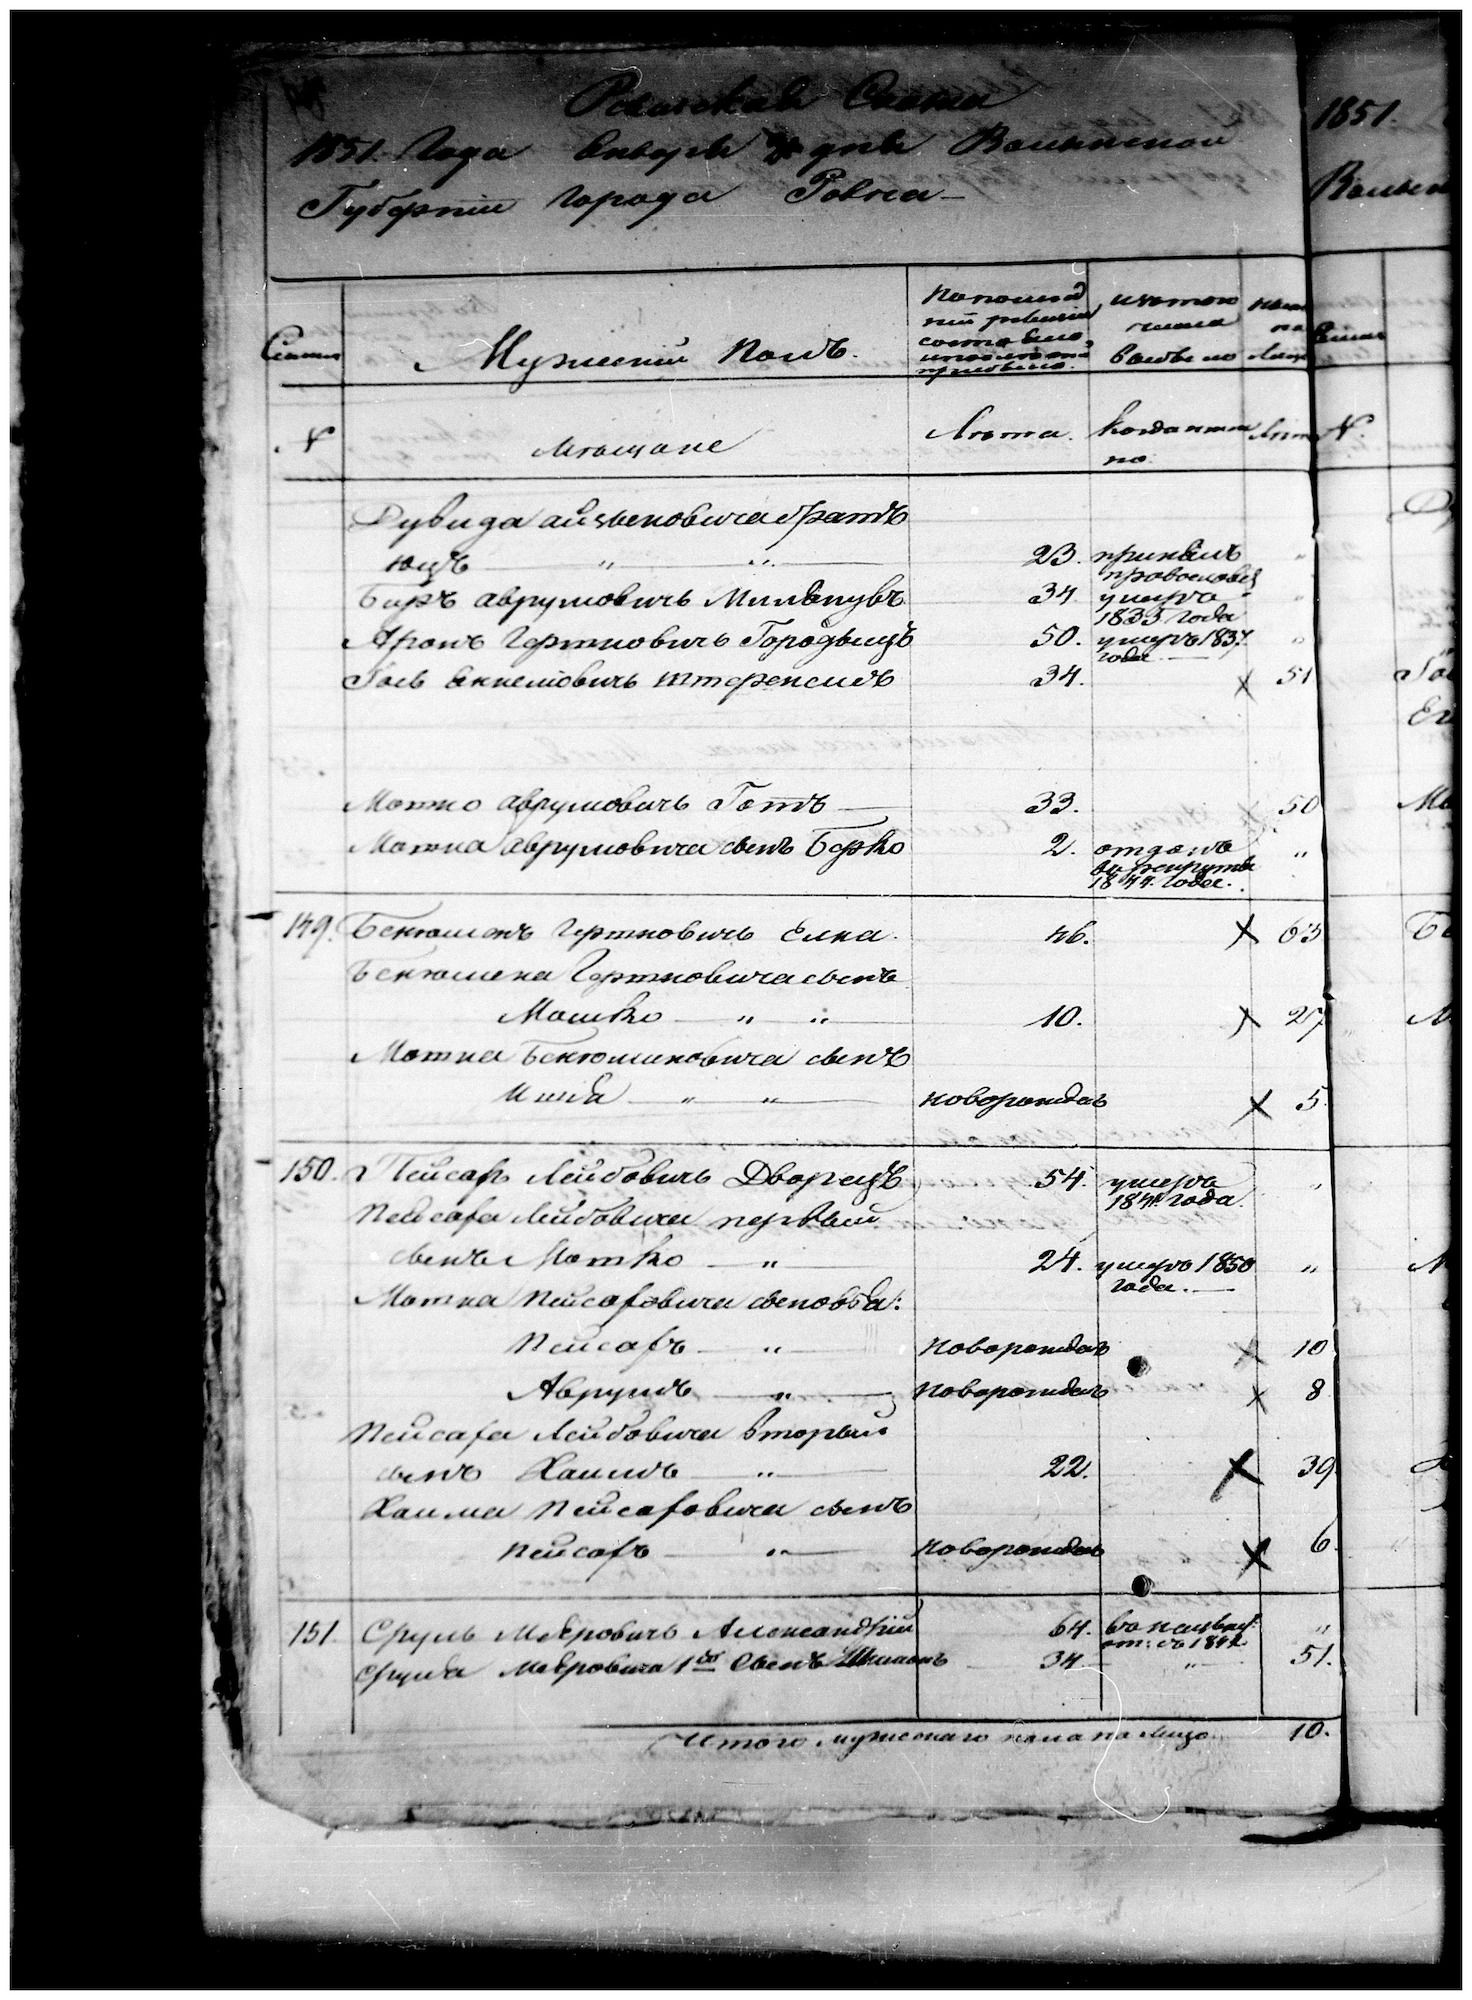 Ревизская Сказка
1851. Года Января дня Волынской
Губернии города Ровна
Семьи
Мужеский Полъ.
По последней ревизии состояло, и после того прибыло.
Изъ того числа выбыло
Ныне на лицо
N
Мещане
Лета.
Когда именно.
Лета
Дувида Айзыковича братъ
Юцъ " " 23. принялъ православіе "
Беръ Аврумовичъ 34 умеръ 1835 года "
Аронъ Гершковичъ Городыщъ 50. умеръ 1837. года "
Гось Янкелювичъ 34. 51
Мошко Аврумовичъ Готъ 33. 50
Мошка Аврумовича сынъ Берко 2. отданъ въ рекруты 1844. года. "
149. Бенюминъ Гершковичъ Елка. 46. 63
Бенюмена Гершковича сынъ
Мошко " " 10. 27
Мошка Бенюминовича сынъ
Ицка " " новорожденъ 5.
150. Пейсахъ Лейбовичъ Дворецъ 54. умеръ 1841. года. "
Пейсаха Лейбовича первый
сынъ Мошко " 24. умеръ 1850 года. "
Мошка Пейсаховича сыновья:
Пейсахъ " новорожденъ 10
Аврумъ " новорожденъ 8
Пейсаха Лейбовича вторый
сынъ Хаимъ " 22. 39.
Хаима Пейсаховича сынъ
Пейсахъ " новорожденъ 6.
151. Сруль Мееровичъ Александрій 64. "
Сруля Мееровича 1й сынъ Шимонъ 34 " 51.
Итого мужескаго пола на лицо 10.
1851.
N.